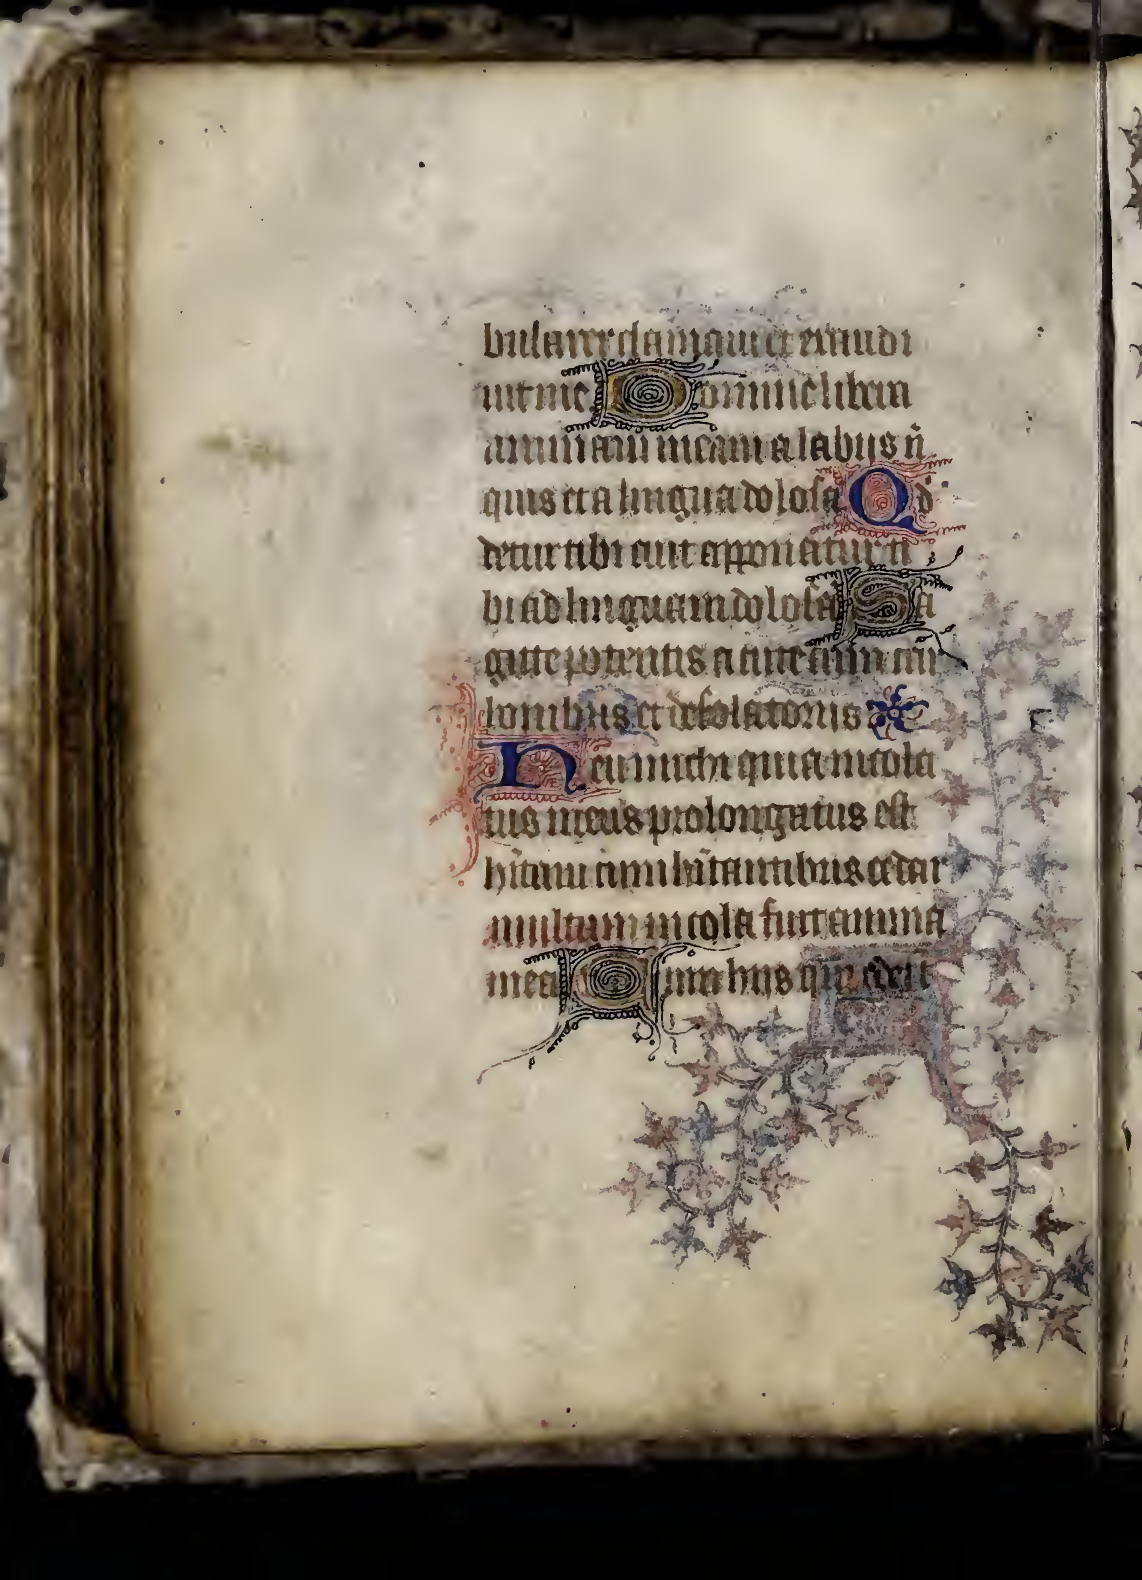 bularer clamaui et exaudi
uit me Domine libera
animam meam a labiis ini
quis et a lingua dolosa Qd
detur tibi aut apponatur ti
bi ad linguam dolosa Sa
gitte potentis acute cum car
bonibus et desolatoriis
Heu michi quia incola
tus meus prolongatus est
hitaui cum hitantibus cedar
multum incola fuit anima
mea Cum hiis qui oderu